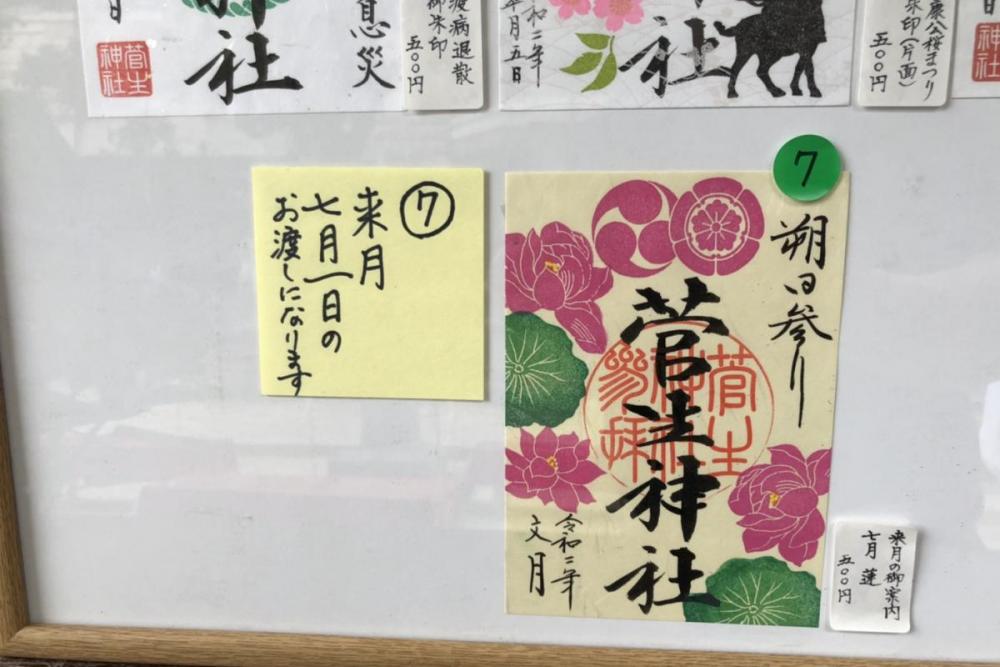 神社
息災
疫病退散
御朱印
五〇〇円
菅生
神社
令和二年
五日
桜まつり
朱印(片面)
五〇〇円
⑦
来月
七月一日の
お渡しになります
7
朔日参り
菅生神社
菅生
神社
参拝
令和二年
文月
来月の御案内
七月 蓮
五〇〇円